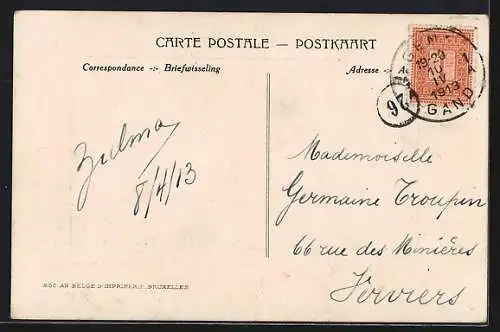 CARTE POSTALE — POSTKAART
Correspondance -:- Briefwisseling
Adresse -:-
GENT 1
19-20
10
IV
1913
GAND 1
97
Zulma
8/4/13
Mademoiselle
Germaine Troupin
66 rue des Minières
Verviers
SOC. AN. BELGE D'IMPRIMERIE, BRUXELLES